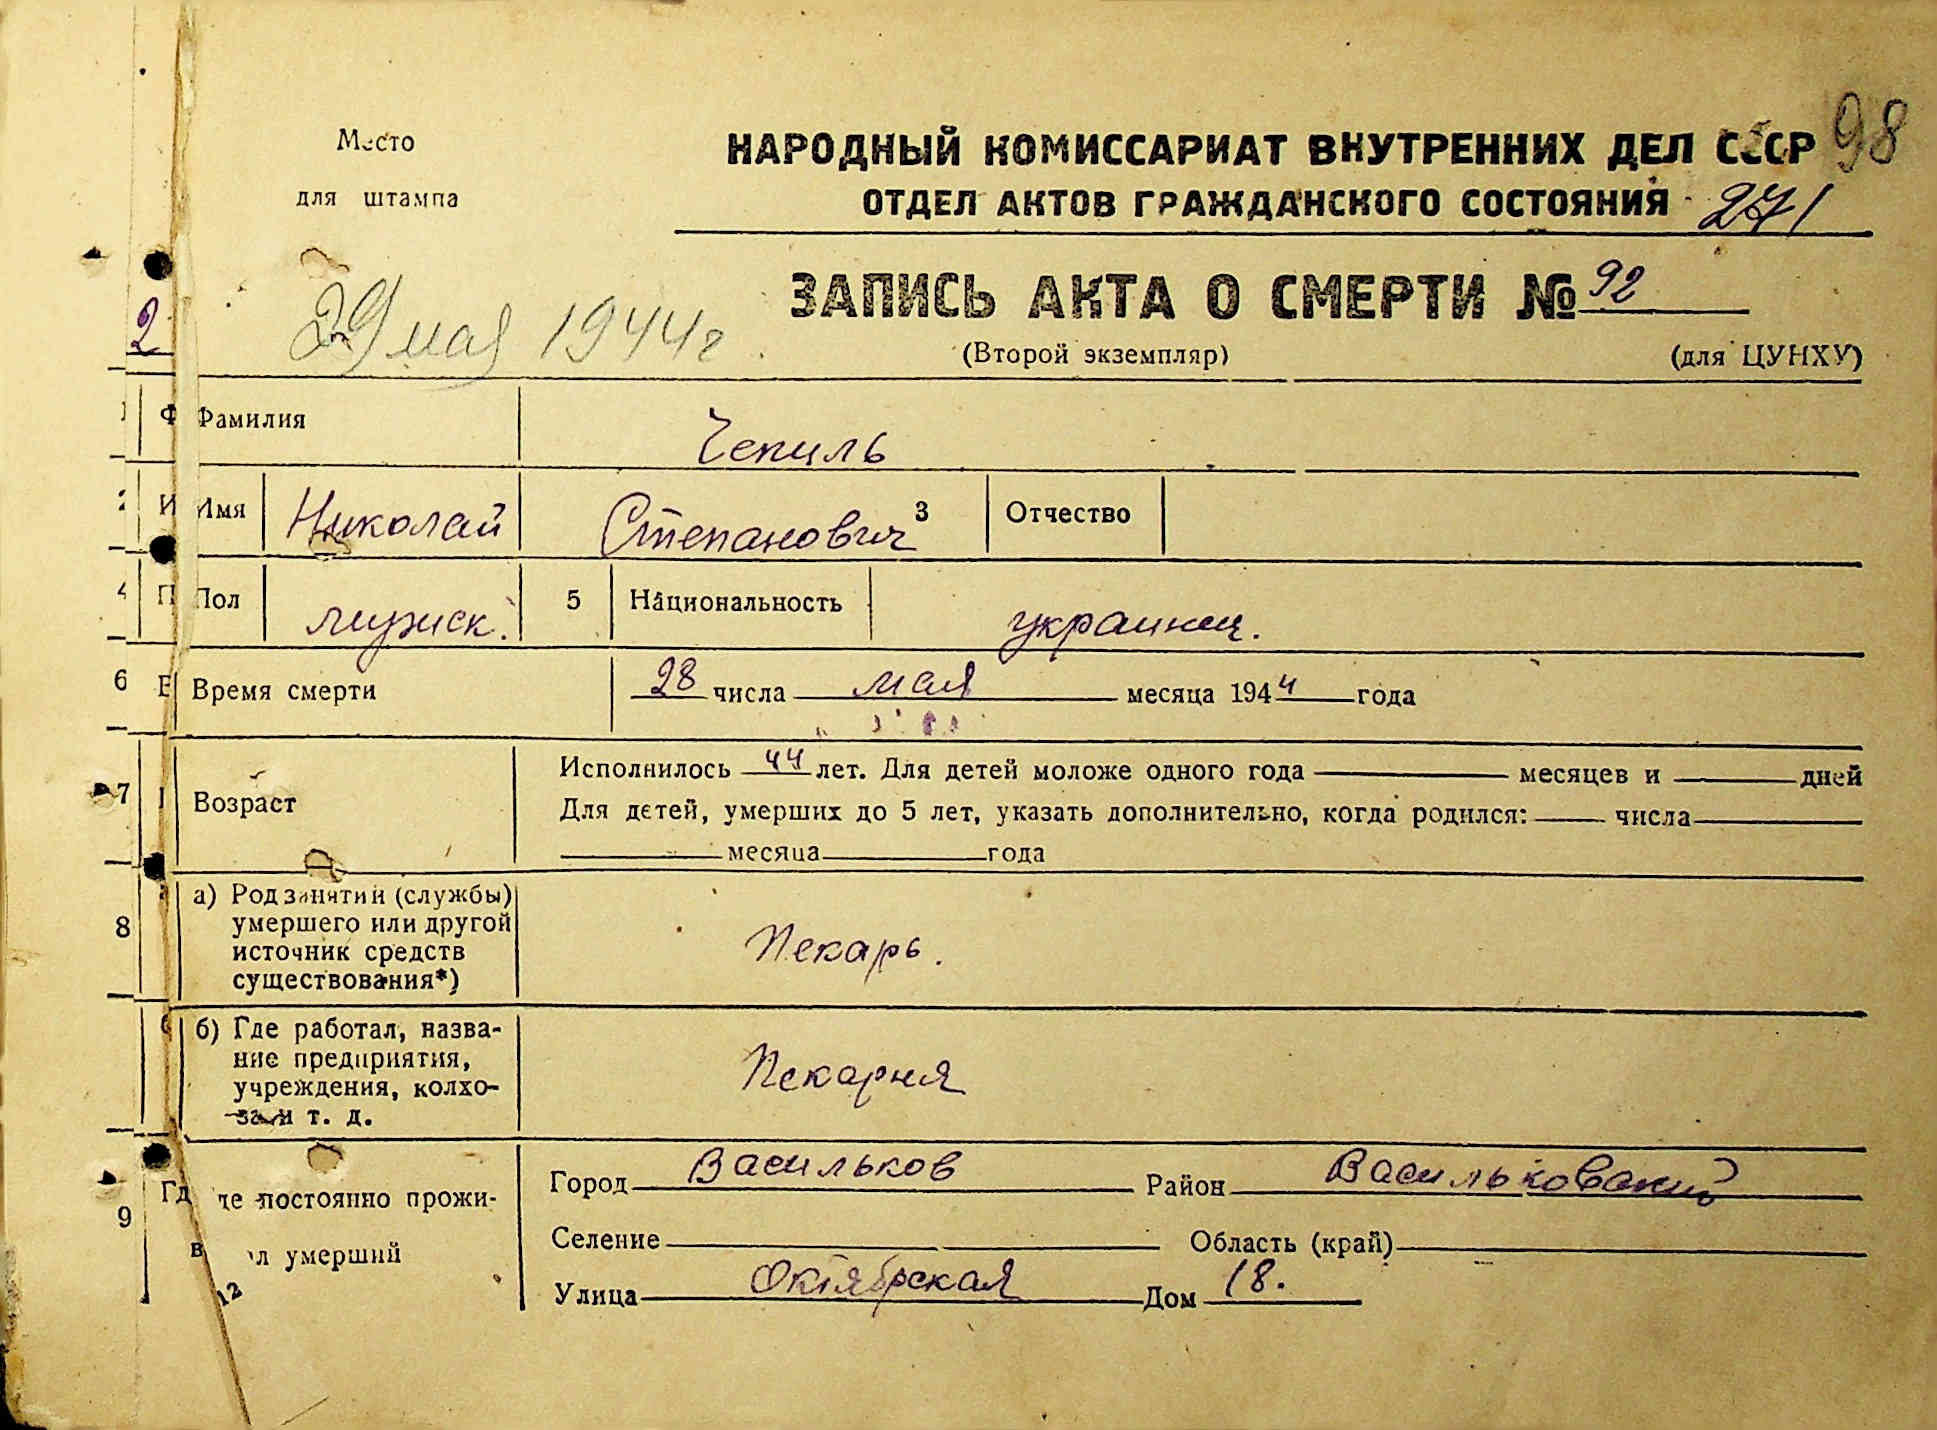 98
Место
для штампа
НАРОДНЫЙ КОМИССАРИАТ ВНУТРЕННИХ ДЕЛ СССР
ОТДЕЛ АКТОВ ГРАЖДАНСКОГО СОСТОЯНИЯ 271
ЗАПИСЬ АКТА О СМЕРТИ № 92
2
29 мая 1944 г.
(Второй экземпляр) (для ЦУНХУ)
Ф Фамилия Чепиль
И Имя Николай Степанович 3 Отчество
4 П Пол мужск. 5 Национальность украинец.
6 Время смерти 28 числа мая месяца 1944 года
7 Возраст Исполнилось 44 лет. Для детей моложе одного года месяцев и дней
Для детей, умерших до 5 лет, указать дополнительно, когда родился: числа
месяца года
8 а) Род занятий (службы)
умершего или другой
источник средств
существования*)
Пекарь.
б) Где работал, назва-
ние предприятия,
учреждения, колхо-
за и т. д.
Пекарня
9 Гд де постоянно прожи-
в ал умерший
12
Город Васильков Район Васильковский
Селение Область (край)
Улица Октябрская Дом 18.